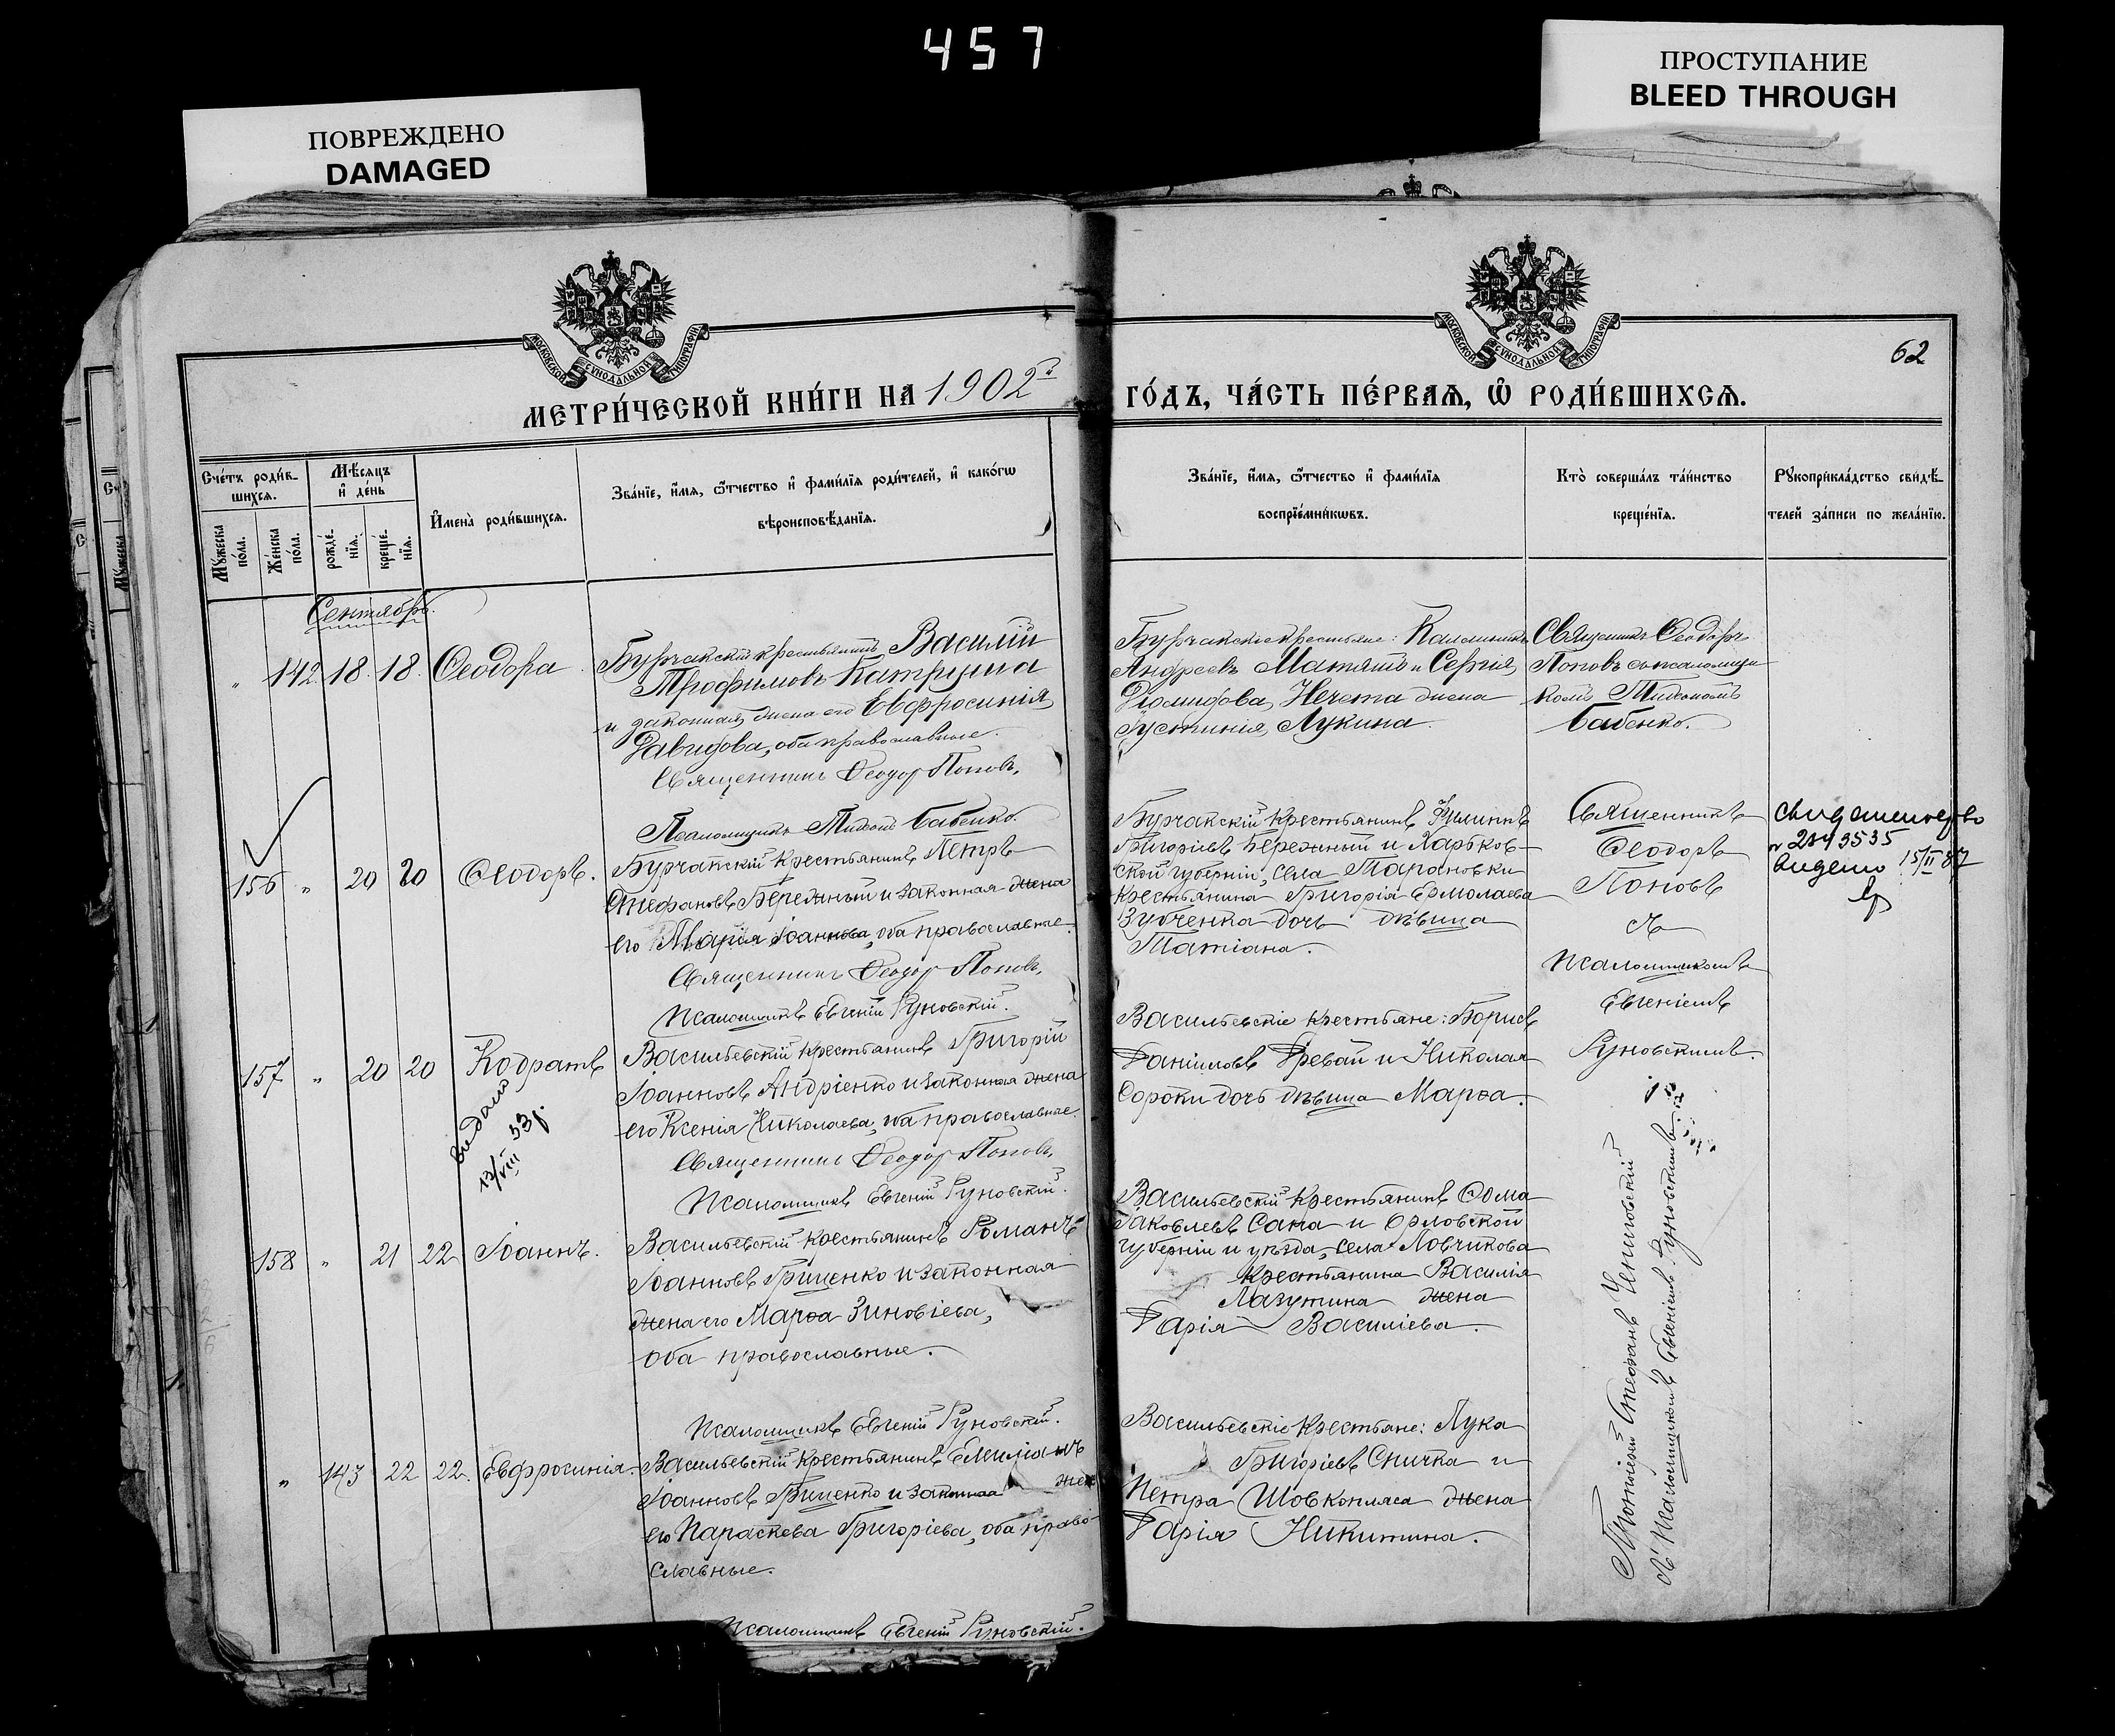 457
ПОВРЕЖДЕНО
DAMAGED
ПРОСТУПАНИЕ
BLEED THROUGH
МОСКОВСКОЙ СУНОДАЛЬНОЙ ТИПОГРАФІИ
МОСКОВСКОЙ СУНОДАЛЬНОЙ ТИПОГРАФІИ
62
МЕТРИ́ЧЕСКОЙ КНИ́ГИ НА 1902й
ГО́ДЪ, ЧА́СТЬ ПЕ́РВАѦ, Ѡ҆ РОДИ́ВШИХСѦ.
Сче́тъ роди́в-
шихсѧ.
Мѣ́сѧцъ
и҆ де́нь
Мꙋ́жеска
по́ла.
Же́нска
по́ла.
рожде́-
нїѧ.
креще́-
нїѧ.
И҆мена̀ роди́вшихсѧ.
Зва́нїе, и҆́мѧ, ѻ҆́тчество и҆ фами́лїѧ роди́телей, и҆ како́гѡ
вѣроисповѣ́данїѧ.
Зва́нїе, и҆́мѧ, ѻ҆́тчество и҆ фами́лїѧ
воспрїе́мникѡвъ.
Кто̀ соверша́лъ та́инство
креще́нїѧ.
Рꙋкоприкла́дство свидѣ́-
телей за́писи по жела́нїю.
Сентябрь.
" 142 18 18 Ѳеодора
Бурчакскій крестьянинъ Василій
Трофимовъ Катруша
и законная жена его Евфросинія
Давидова, оба православные.
Священникъ Ѳеодор Поповъ,
Псаломщикъ Тимоѳей Бабенко.
Бурчакскіе крестьяне:
Андреевъ и Сергія
Нечета жена
Іустинія Лукина.
Священникъ Ѳеодоръ
Поповъ съ псаломщи-
комъ
Бабенко.
156 " 20 20 Ѳеодоръ.
Бурчакскій крестьянинъ Петръ
Стефановъ Бережный и законная жена
его Марія Іоаннова, оба православные.
Священникъ Ѳеодор Поповъ,
Псаломщикъ Евгеній Руновскій.
Бурчакскій крестьянинъ Филиппъ
Григоріевъ Бережный и Харьков-
ской губерніи, села Тарановки
крестьянина Григорія Ермолаева
Зубченка дочь дѣвица
Татіана.
Священникъ
Ѳеодоръ
Поповъ
съ
псаломщикомъ
Евгеніемъ
Руновскимъ.
Свидетельство
15/II 87
157 " 20 20 Кодратъ
выдано
13/VIII 33 г.
Васильевскій крестьянинъ Григорій
Іоанновъ Андріенко и законная жена
его Ксенія Николаева, оба православные.
Священникъ Ѳеодор Поповъ,
Псаломщикъ Евгеній Руновскій.
Васильевскіе крестьяне: Борисъ
Даніиловъ Гревай и Николая
Сороки дочь дѣвица Марѳа.
158 " 21 22 Іоаннъ.
Васильевскій крестьянинъ Романъ
Іоанновъ Гриценко и законная
жена его Марѳа Зиновіева,
оба православные.
Псаломщикъ Евгеній Руновскій.
Васильевскій крестьянинъ Ѳома
Іаковлевъ Сама и Орловской
губерніи и уѣзда, села Ловчикова
крестьянина Василія
Лазутина жена
Дарія Василіева.
Протоіерей Стефанъ
съ псаломщикомъ Евгеніемъ Руновскимъ.
" 143 22 22. Евфросинія.
Васильевскій крестьянинъ Емиліанъ
Іоанновъ Гриценко и законная жена
его Параскева Григоріева, оба право-
славные.
Псаломщикъ Евгеній Руновскій.
Васильевскіе крестьяне: Лука
Григоріевъ Сничка и
Петра Шовкопляса жена
Дарія Никитина.